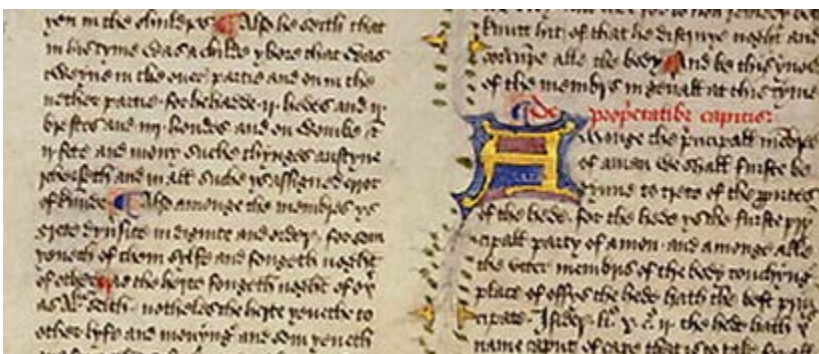 in the childres Also he seith that
in his tyme was a childe ybore that was
tweyne in the over partie and on in the
nether partie for he hadde ij hedes and ij
brestes and iiij hondes and on wombe &
ij fete and mony suche thynges austyne
reherseth and in all suche ys assigned
of kinde Also amonge the membris ys
grete dyversite in dignite and order for som
yeveth of them selfe and fongeth noght
of other as the herte fongeth noght of
as seith notheles the herte yeveth to
other lyfe and movyng and som yeveth
knitt hit of that he distruye noght and
corrupte alle the body And be this ynow
of the membris in generall at this tyme
De capitis
Amonge the principall
of a man we shall furste be
gynne to trete of the partes
of the hede for the hede ys the furste
cipall party of a mon and amonge alle
the utter membris of the body touchyng
place of offys the hede hath the best prin
cipate Isider the hede hath y
name caput of cape that is to take